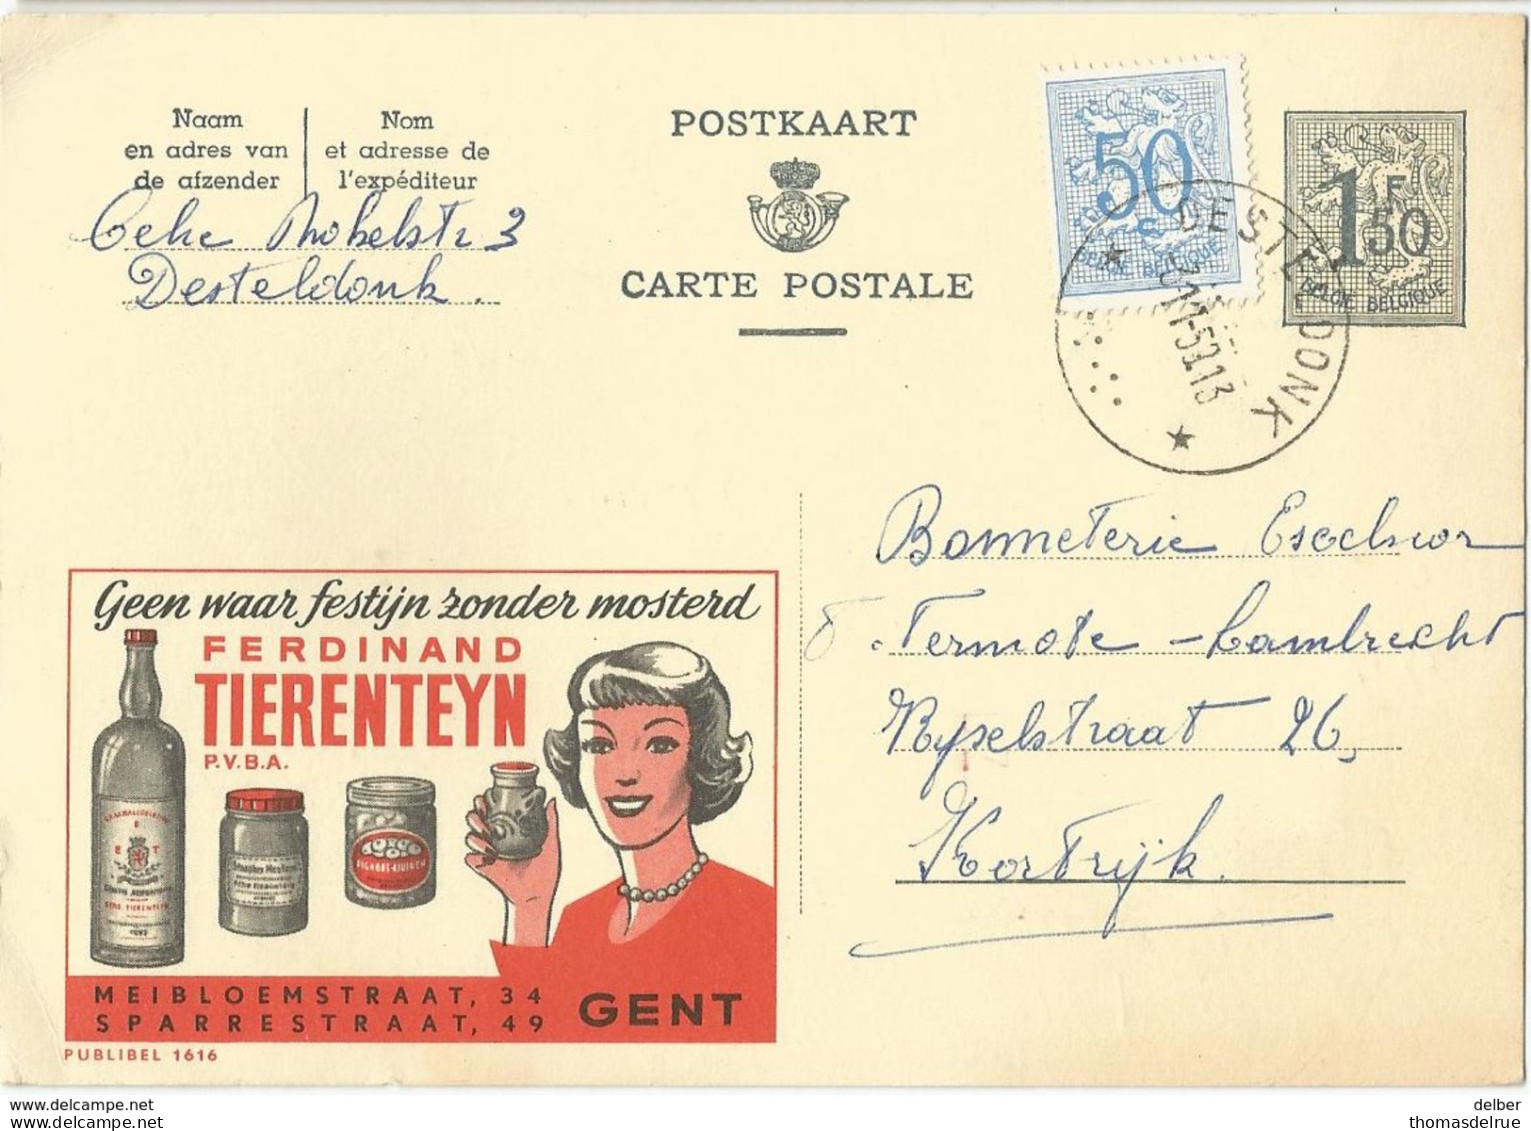 Naam
en adres van
de afzender
Nom
et adresse de
l'expéditeur
Desteldonk.
POSTKAART
CARTE POSTALE
50
c
BELGIE BELGIQUE
DESTELDONK
1F50
BELGIE BELGIQUE
Bonneterie
Termote - Lambrecht
Rijselstraat 26,
Kortrijk.
Geen waar festijn zonder mosterd
FERDINAND
TIERENTEYN
P.V.B.A.
E T
MEIBLOEMSTRAAT, 34
SPARRESTRAAT, 49
GENT
PUBLIBEL 1616
www.delcampe.com
www.delcampe.net
delber
thomasdelrue